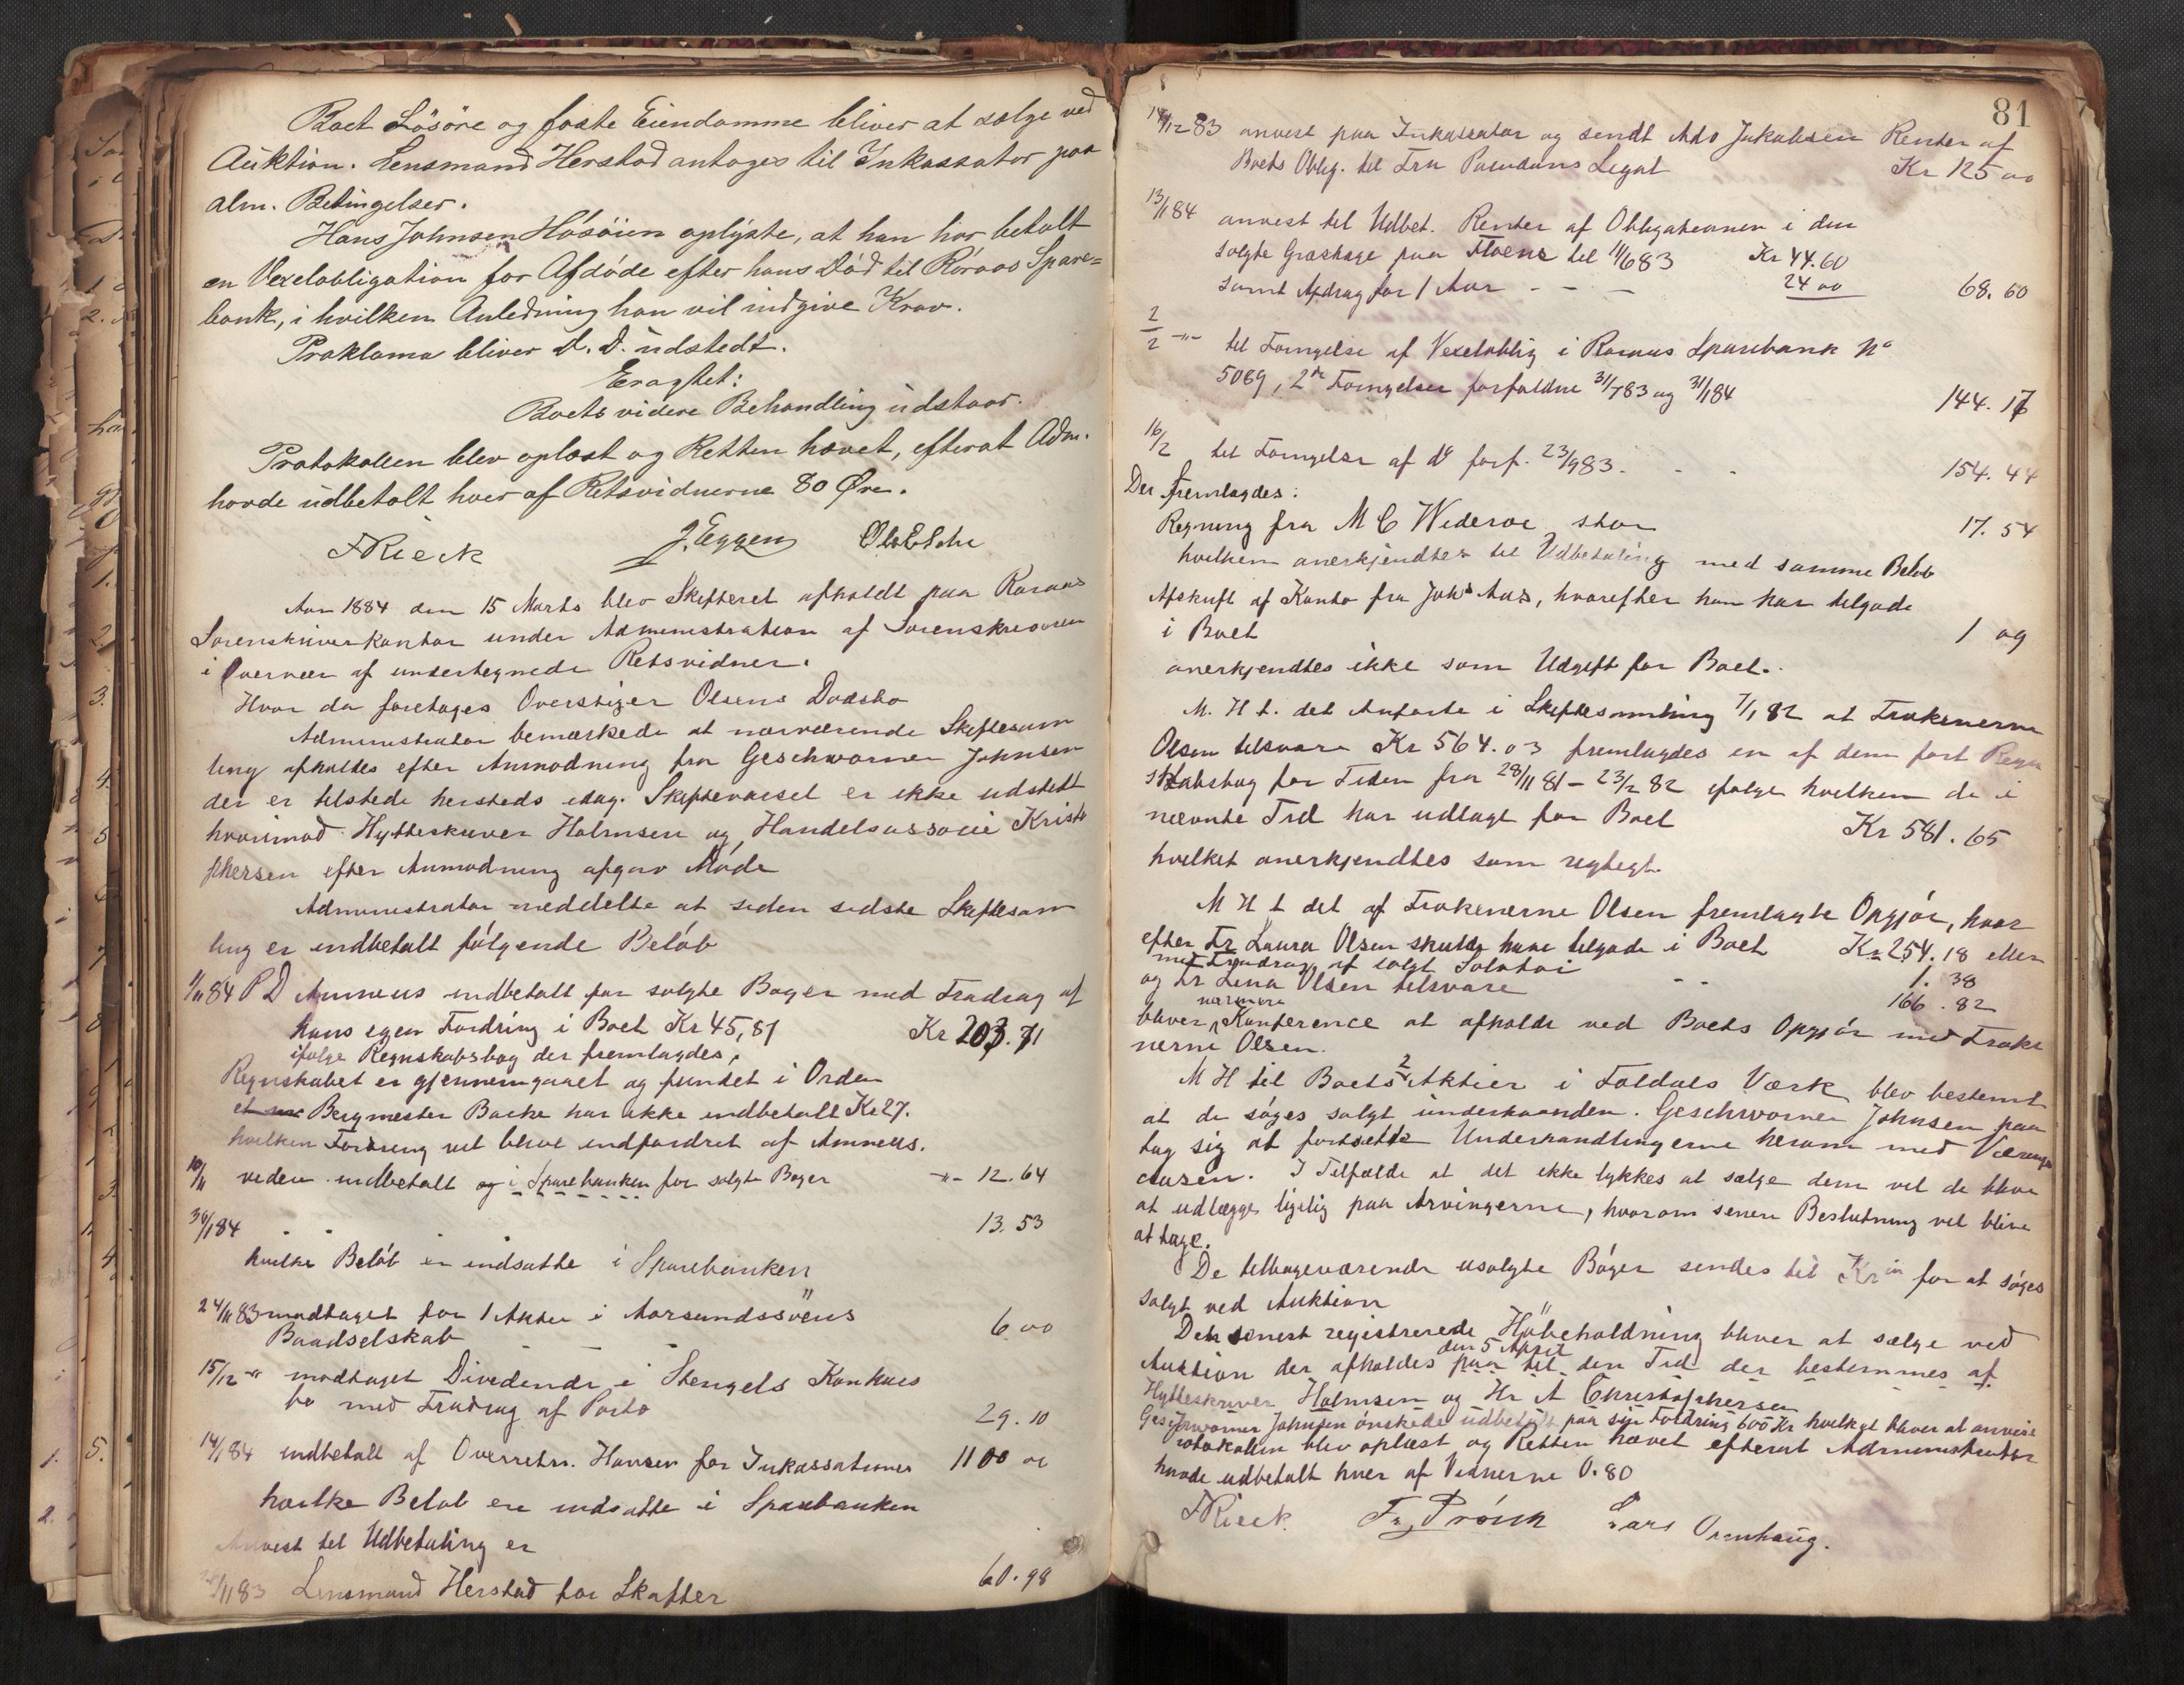 Boet Lösöre og faste Eiendomme bliver at sælge ved
Auktion. Lensmand Herstad antoges til Inkassator paa
alm. Betingelser.
Hans Johnsen Hösöien oplyste, at han har betalt
en Vexelobligation for Afdöde efter hans Död til Röraas Spare=
bank, i hvilken Anledning han vil indgive Krav.
Proklama bliver D. D. udstedt.
Eragtet:
Boets videre Behandling udstaar.
Protokollen blev oplæst og Retten hævet, efterat Adm.
havde udbetalt hver af Retsvidnerne 80 Øre.
FRieck J. Eggen
Aar 1884 den 15 Marts blev Skifteret afholdt paa Röraas
Sorenskriverkontor under Administration af Sorenskriveren
i Overvær af undertegnede Retsvidner.
Hvor da foretoges Overstiger Olsens Dødsbo
Administrator bemærkede at nærværende Skiftesam
ling afholdes efter Anmodning fra Geschworner Johnsen
der er tilstede hersteds idag. Skiftevarsel er ikke udstedt
hvorimod Hytteskriver Holmsen og Handelsassocie Kristo
phersen efter Anmodning afgav Möde
Administrator meddelte at siden sidste Skiftesam
ling er indbetalt fölgende Belöb
1/11 84 P D Anneus indbetalt for solgte Bøger med Fradrag af
hans egen Fordring i Boet Kr 45,87 Kr 203.71
ifølge Regnskabsbog der fremlagdes,
Regnskabet er gjennemgaaet og fundet i Orden
Bergmester Backe har ikke indbetalt Kr 27.
hvilken Fordring vil blive indfordret af Anneus.
10/11 videre indbetalt og i Sparebanken for solgte Bøger -"- 12.64
30/1 84 " " 13.53
hvilke Belöb er indsatte i Sparebanken
24/11 83 modtaget for 1 Aktie i Aursundsöens 6.00
Baadselskab
15/12 -"- modtaget Dividende i Stengels Konkurs
bo med Fradrag af Porto 29.10
14/1 84 indbetalt af Overretss. Hansen for Inkassationer 1100 00
hvilke Beløb ere indsatte i Sparebanken
Anvist til Udbetaling er
/11 83 Lensmand Herstad for Skatter 60.98
81
14/12 83 anvist paa Inkassator og sendt Adv Jakobsen Renter af
Boets Oblig. til Fru Paludans Legat Kr 125 00
13/1 84 anvist til Udbet. Renter af Obligationen i den
solgte Græshage paa Floene til 11/6 83 Kr 44.60
samt Afdrag for 1 Aar - - - 24 00 68.60
2/2 -"- til Fornyelse af Vexeloblig i Røraas Sparebank No
5089, 2de Fornyelser forfaldne 31/7 83 og 31/1 84 144.17
16/2 til Fornyelse af do forf. 23/9 83. - - 154.44
Der fremlagdes:
Regning fra M C Widerøe stor 17.54
hvilken anerkjendtes til Udbetaling med samme Beløb
Afskrift af Konto fra Johs Aas, hvorefter han har tilgode
i Boet 1 09
anerkjendtes ikke som Udgift for Boet.
M. H t. det Anførte i Skiftesamling 7/1 82 at Frøkenerne
Olsen tilsvare Kr 564.03 fremlagdes en af dem ført Regn
skabsbog for Tiden fra 28/11 81 - 23/2 82 ifølge hvilken de i
nævnte Tid har udlagt for Boet Kr 581.65
hvilket anerkjendtes som rigtigt.
M H t det af Frøkenerne Olsen fremlagte Opgjör, hvor
efter Fr Laura Olsen skulde have tilgode i Boet Kr 254.18 eller
med Fradrag af solgt 1.38
og Fr Lina Olsen tilsvare - - 166.82
bliver nærmere Konference at afholde ved Boets Opgjör med Frøke
nerne Olsen.
M H til Boets 2 Aktier i Foldals Værk blev bestemt
at de söges solgt underhaanden. Geschworner Johnsen paa
tog sig at fortsætte Underhandlingerne herom med
clusen. I Tilfælde at det ikke lykkes at sælge dem vil de blive
at udlægge ligelig paa Arvingerne, hvorom senere Beslutning vil blive
at tage.
De tilbageværende usolgte Böger sendes til Kr.ia for at söges
solgt ved Auktion
Den senest registrerede Höbeholdning bliver at sælge ved
Auktion der afholdes den 5 April paa til den Tid der bestemmes af
Hytteskriver Holmsen og Hr A Christophersen
Geschworner Johnsen önskede udbetalt paa sin Fordring 600 Kr hvilket bliver at anvise
Protokollen blev oplæst og Retten hævet efterat Administrator
havde udbetalt hver af Vidnerne 0.80
FRieck. Fr, Prösch Lars Ornhaug.